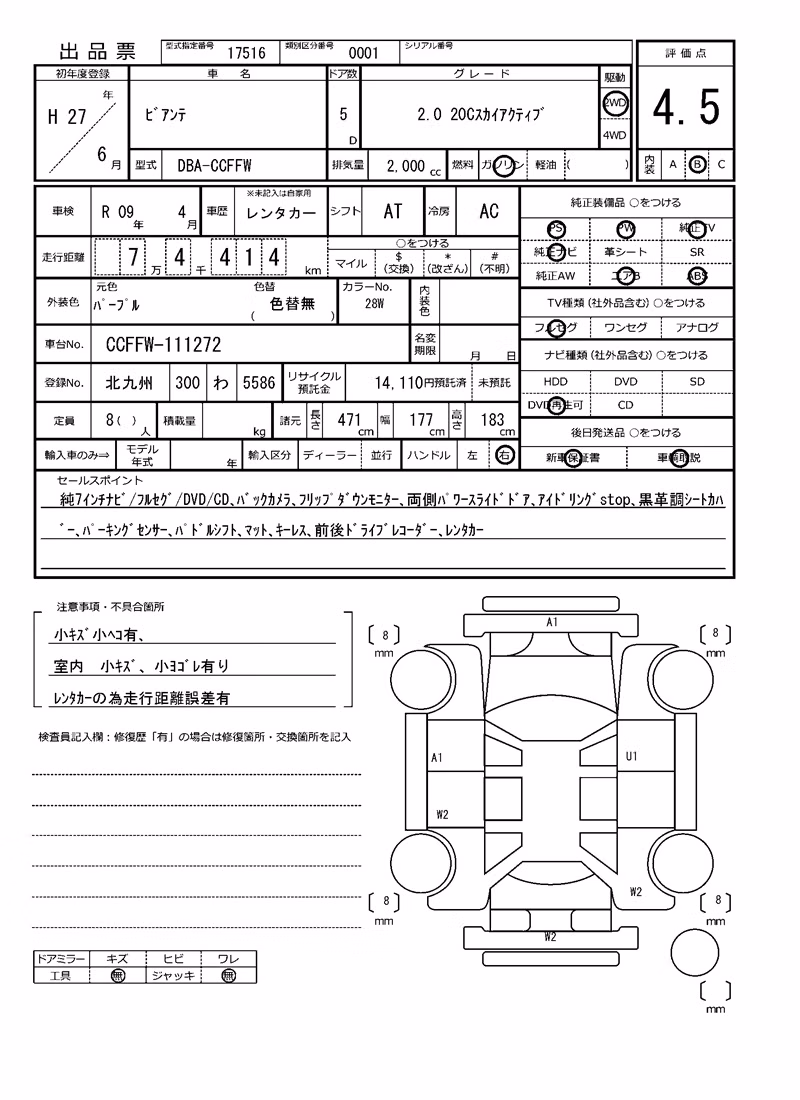 出品票 型式指定番号 17516 類別区分番号 0001 シリアル番号
評価点
4.5
内装 A B C
初年度登録 車名 ドア数 グレード 駆動
H 27 年 6 月 ビアンテ 5 D 2.0 20Cスカイアクティブ 2WD
4WD
型式 DBA-CCFFW 排気量 2,000 cc 燃料 ガソリン 軽油 ( )
車検 R 09 年 4 月 車歴 ※未記入は自家用 レンタカー シフト AT 冷房 AC
走行距離 7 万 4 千 4 1 4 km
○をつける
マイル $ (交換) * (改ざん) # (不明)
外装色 元色 パープル 色替 ( 色替無 ) カラーNo. 28W 内装色
車台No. CCFFW-111272 名変期限 月 日
登録No. 北九州 300 わ 5586 リサイクル預託金 14,110円預託済 未預託
定員 8( ) 人 積載量 kg 諸元 長さ 471 cm 幅 177 cm 高さ 183 cm
輸入車のみ⇒ モデル年式 年 輸入区分 ディーラー 並行 ハンドル 左 右
純正装備品 ○をつける
PS PW 純正TV
純正ナビ 革シート SR
純正AW エアB ABS
TV種類(社外品含む)○をつける
フルセグ ワンセグ アナログ
ナビ種類(社外品含む)○をつける
HDD DVD SD
DVD再生可 CD
後日発送品 ○をつける
新車保証書 車輌取説
セールスポイント
純7インチナビ/フルセグ/DVD/CD、バックカメラ、フリップダウンモニター、両側パワースライドドア、アイドリングstop、黒革調シートカバ
ー、パーキングセンサー、パドルシフト、マット、キーレス、前後ドライブレコーダー、レンタカー
注意事項・不具合箇所
小キズ小ヘコ有、
室内 小キズ、小ヨゴレ有り
レンタカーの為走行距離誤差有
検査員記入欄：修復歴「有」の場合は修復箇所・交換箇所を記入
ドアミラー キズ ヒビ ワレ
工具 無 ジャッキ 無
A1
8
mm
8
mm
A1
U1
W2
W2
W2
8
mm
8
mm
mm